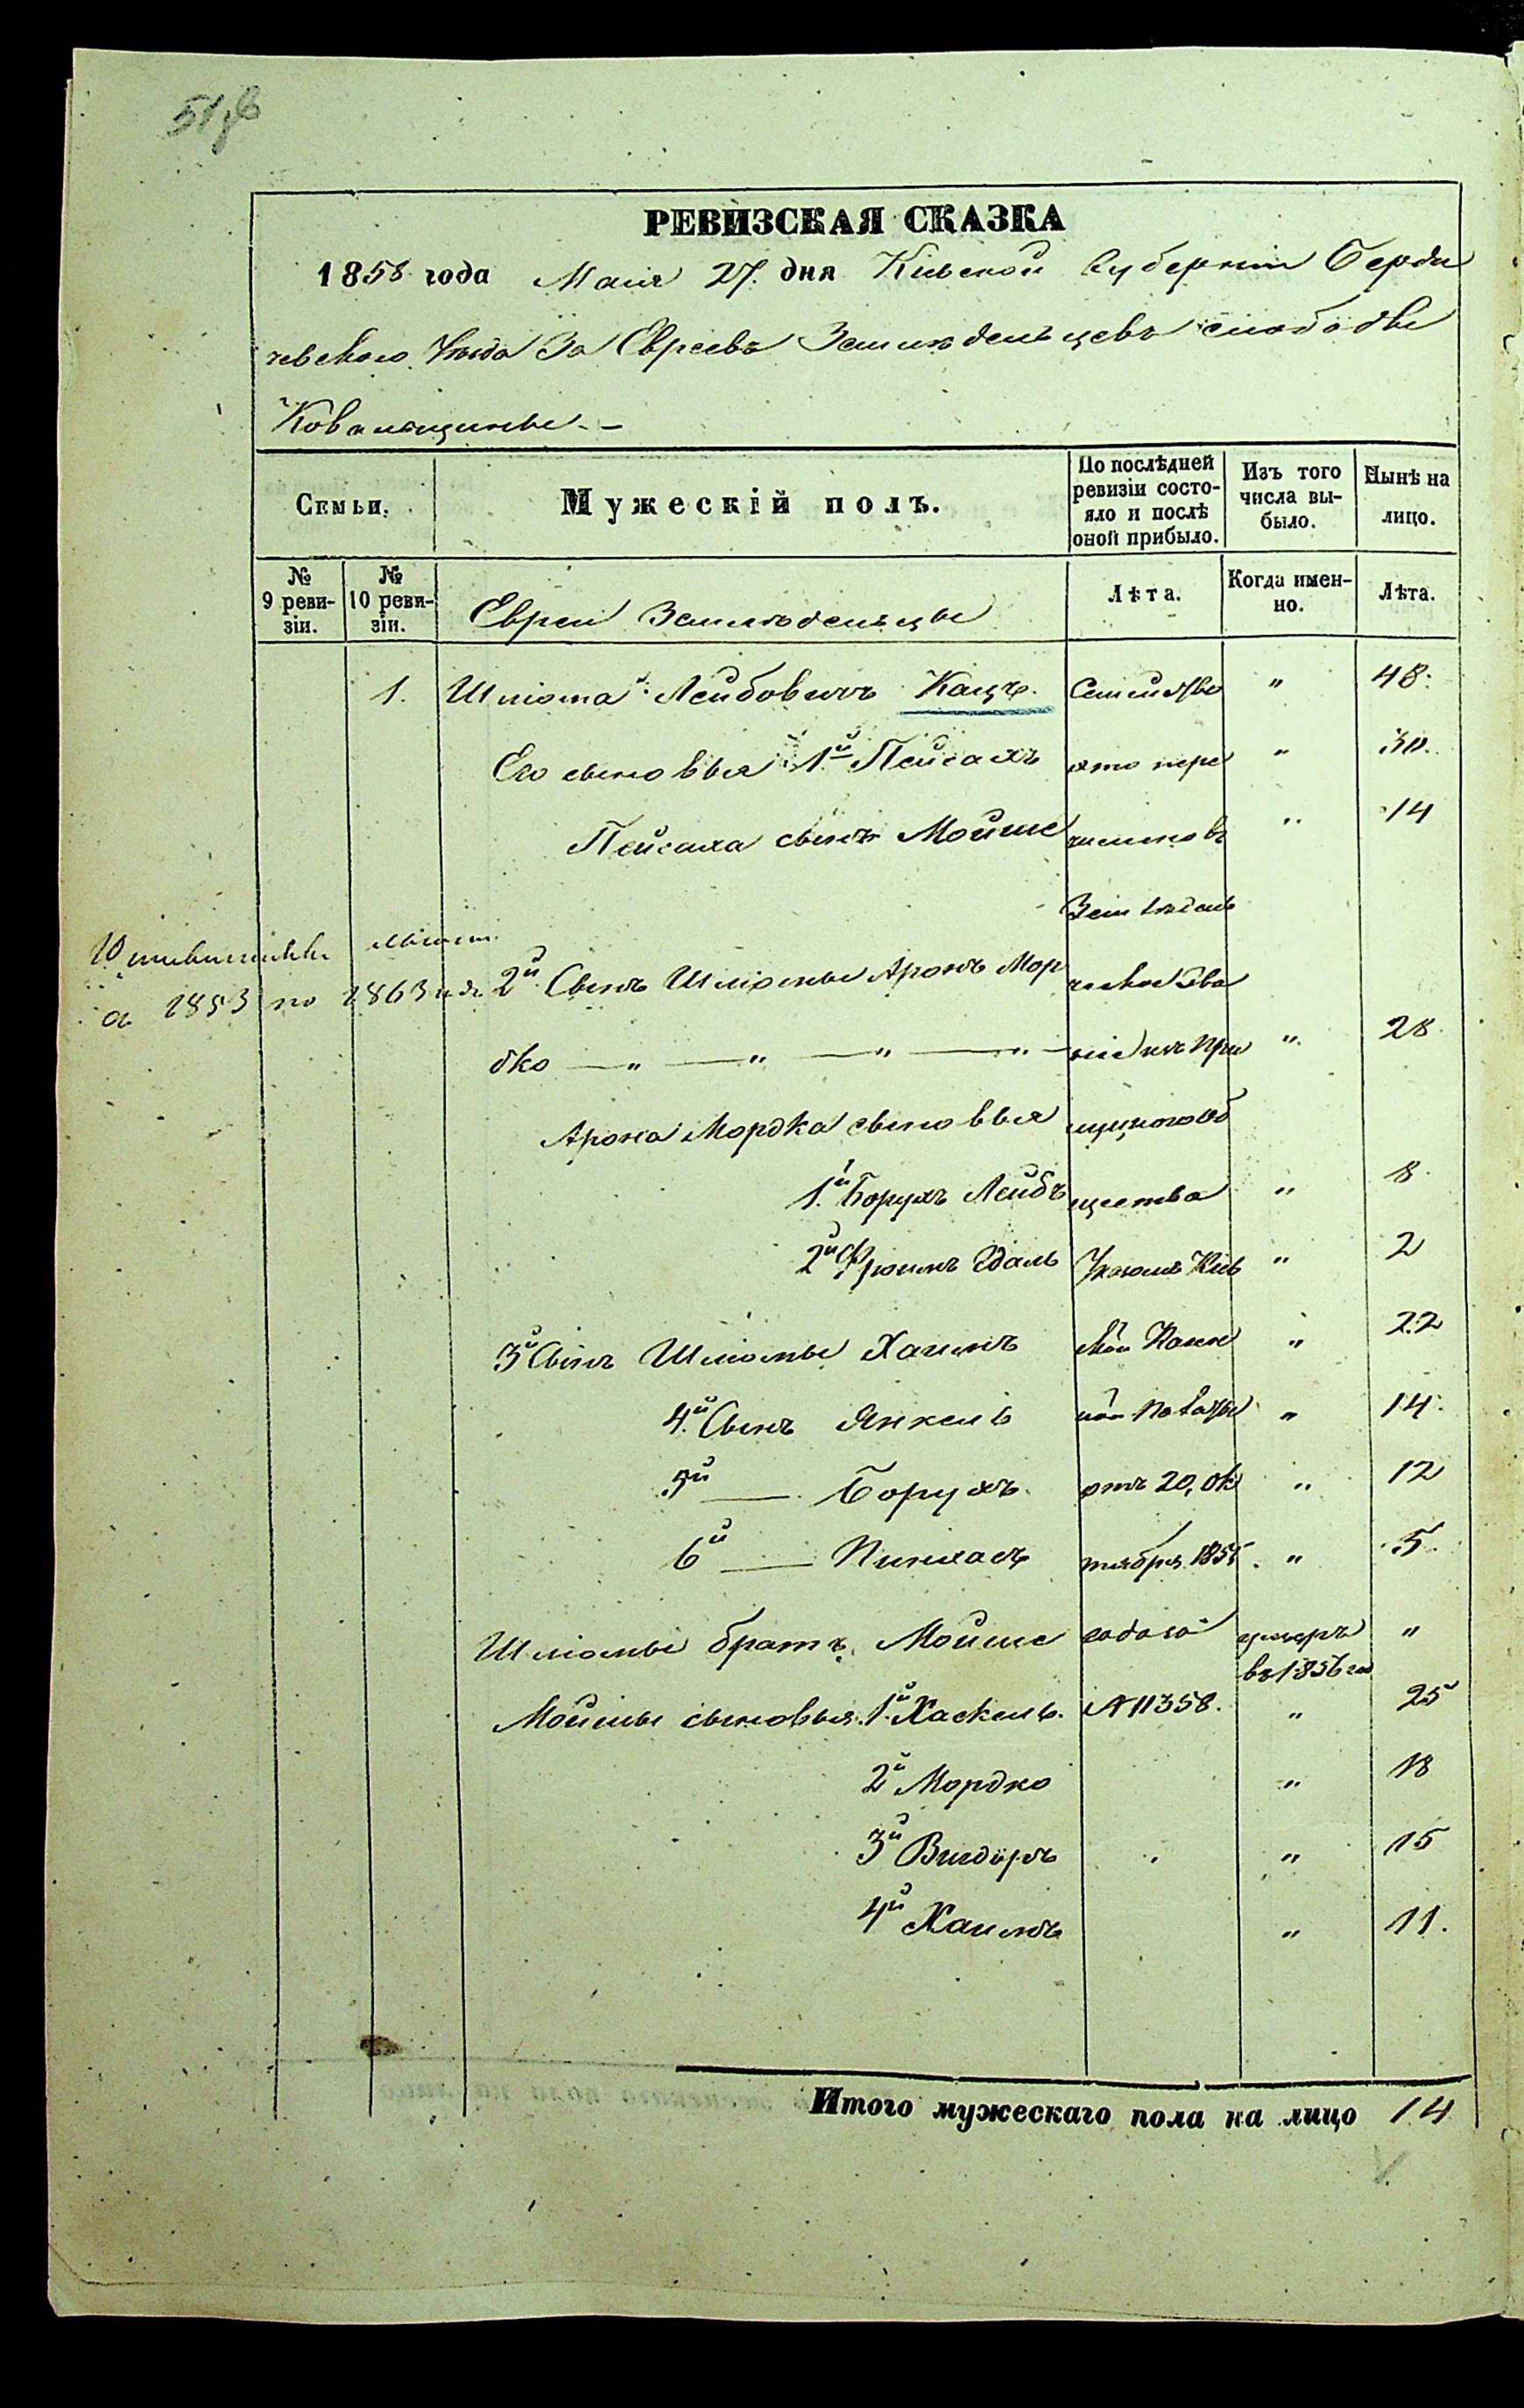 51
РЕВИЗСКАЯ СКАЗКА
1858 года Маия 27. дня Кіевской Губерніи Берди
чевскаго Уѣзда За Евреевъ Земледельцевъ слободы
Ковалищины. –
Семьи. Мужескій полъ. По послѣдней ревизіи состояло и послѣ оной прибыло. Изъ того числа выбыло. Нынѣ на лицо.
№ 9 ревизіи. № 10 ревизіи. Евреи Земледельцы Лѣта. Когда именно. Лѣта.
1. Шліома Лейбовичъ Кацъ. Семейство " 48.
Его сыновья 1й Пейсахъ это пере " 30.
Пейсаха сынъ Мойше численовъ " 14
Земледель
с 1853 по 1863 2й Сынъ Шліомы Аронъ Мор
дко — " — " — " — " — " 28
Арона Мордка сыновья
1й Борухъ Лейбъ щества " 8
2й Фроимъ " 2
3й Сынъ Шліомы Хаимъ " 22
4й Сынъ Янкель " 14.
5й — Борухъ. отъ 20, ок " 12
6й — Пинхасъ тября 1855 " 5.
Шліомы братъ Мойше года за умеръ "
въ 1856 го
Мойшы сыновья. 1й Хаскель. № 11358. " 25
2й Мордко " 18
3й Вигдоръ " 15
4й Хаимъ " 11.
Итого мужескаго пола на лицо 14